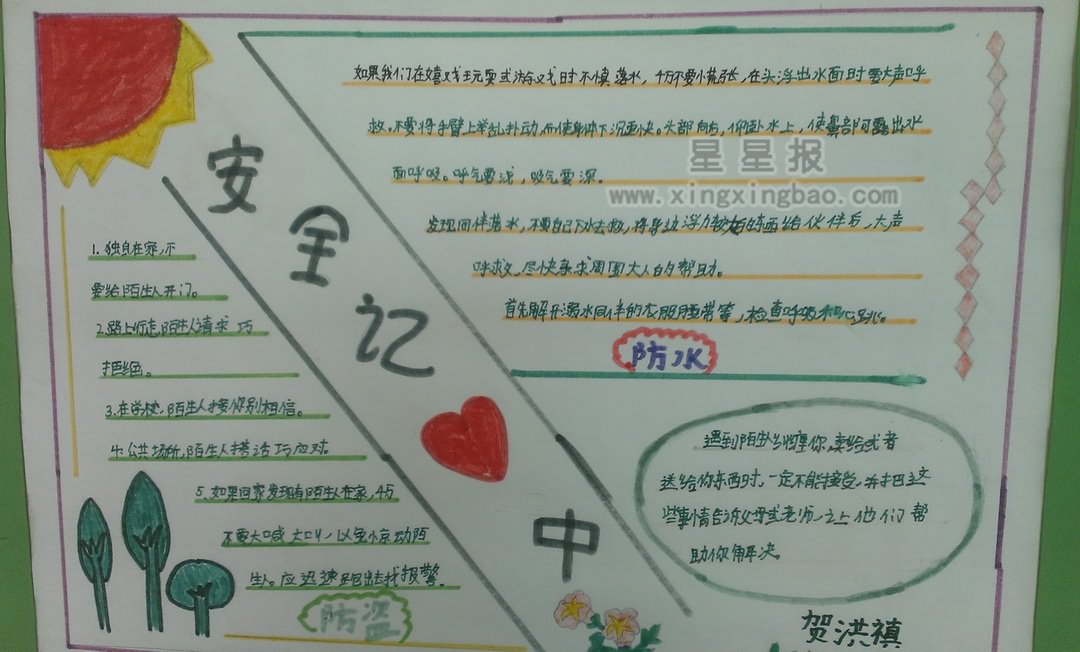 安全记
中
如果我们在嬉戏玩耍或游戏时不慎落水，千万不要慌张，在头浮出水面时要大声呼
救。不要将手臂上举乱扑动，而使身体下沉更快。头部向后，仰卧水上，使鼻部可露出水
面呼吸。呼气要浅，吸气要深。
发现同伴落水，不要自己下水去救，将身边浮力较好的东西给伙伴后，大声
呼救，尽快寻求周围大人的帮助。
首先解开溺水同伴的衣服腰带等，检查呼吸和心跳。
防水
星星报
www.xingxingbao.com
1、独自在家，不
要给陌生人开门。
2、路上听走陌生人请求巧
拒绝。
3、在学校，陌生人接你别相信。
4、公共场所，陌生人搭话巧应对。
5、如果回家发现有陌生人在家，千万
不要大喊大叫，以免惊动陌
生人。应迅速跑出去找报警。
防盗
遇到陌生人，卖给或者
送给你东西时，一定不能接受，并把这
些事情告诉父母或老师，让他们帮
助你解决。
贺洪禛